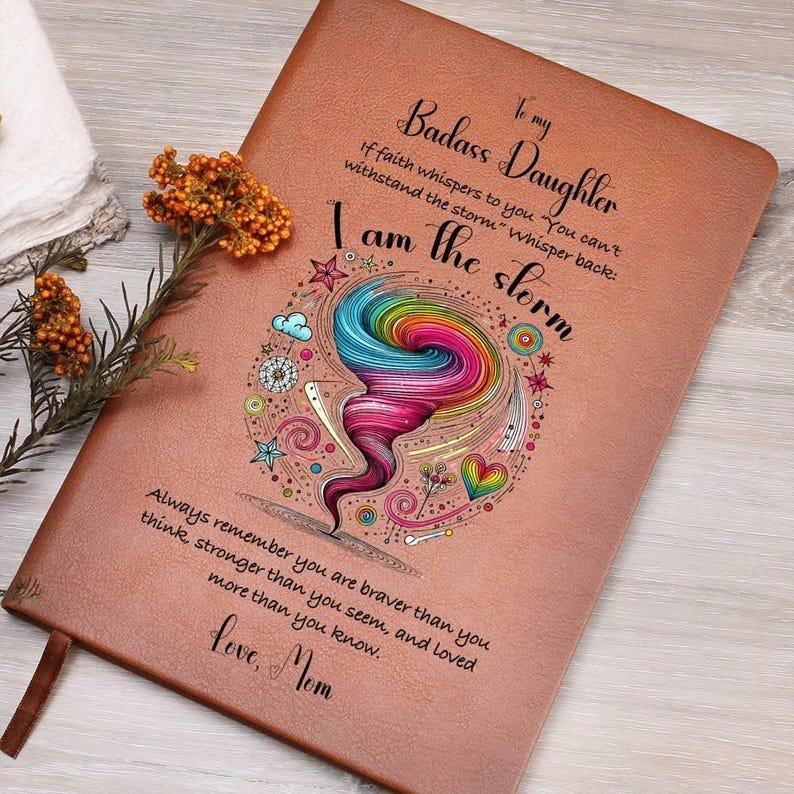 To my
Badass Daughter
If faith whispers to you "You can't
withstand the storm" Whisper back:
I am the storm
Always remember you are braver than you
think, stronger than you seem, and loved
more than you know.
Love, Mom